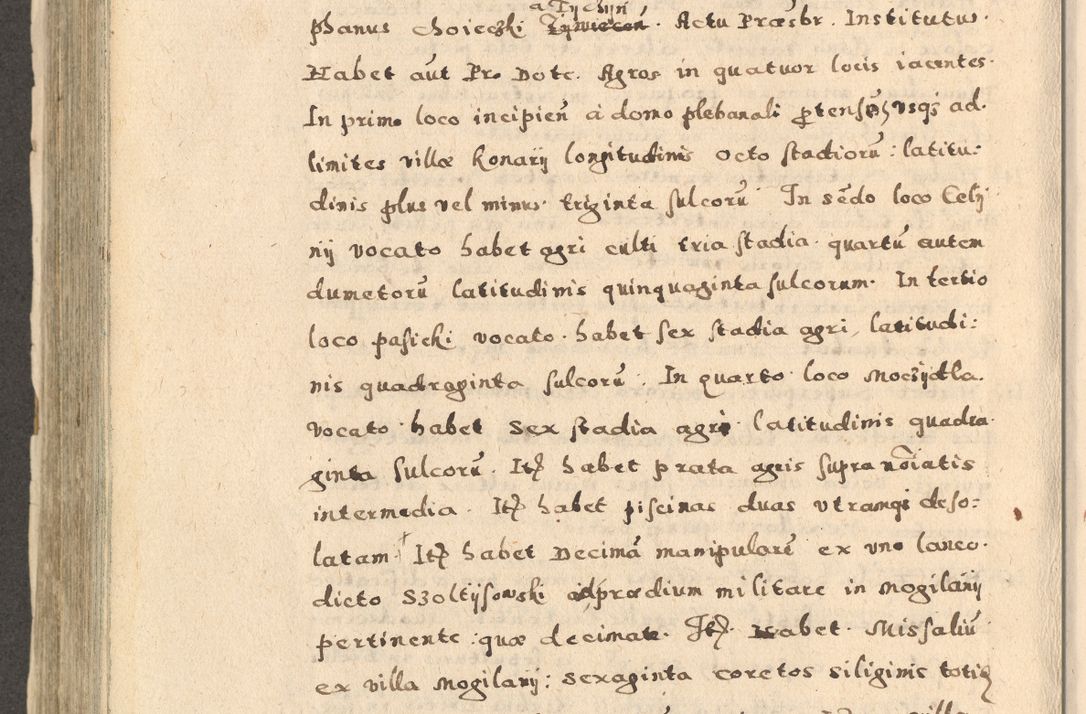 a Tychyń
phanus Choiecki Żywiecen. Actu Præsbr. Institutus.
Habet aut Pro Dote. Agros in quatuor locis iacentes.
In primo loco incipień à domo plebanali ꝑtens̄ usqs ad.
limites villæ Konary longitudinis octo stadiorū: latitu:
dinis plus vel minus. triginta sulcorū In sēdo loco Celÿ
nij vocato habet agri culti tria stadia. quartū autem
dumetorū latitudinis quinquaginta sulcorum. In tertio
loco pasieki vocato. habet sex stadia agri, latitudi:
nis quadraginta sulcorū. In quarto loco Moczydla.
vocato. habet Sex stadia agri. latitudinis quadra
ginta sulcorū. Itē habet prata agris supra nōiatis
intermedia. Itē habet piscinas duas utramqs deso:
latam † Itē habet Decimā manipularē ex uno laneo.
dicto Szoltysowski ad prædium militare in Mogilany
pertinente: quæ decimat. Itē. Habet. Missaliū
ex villa Mogilany: sexaginta coretos siliginis totiq